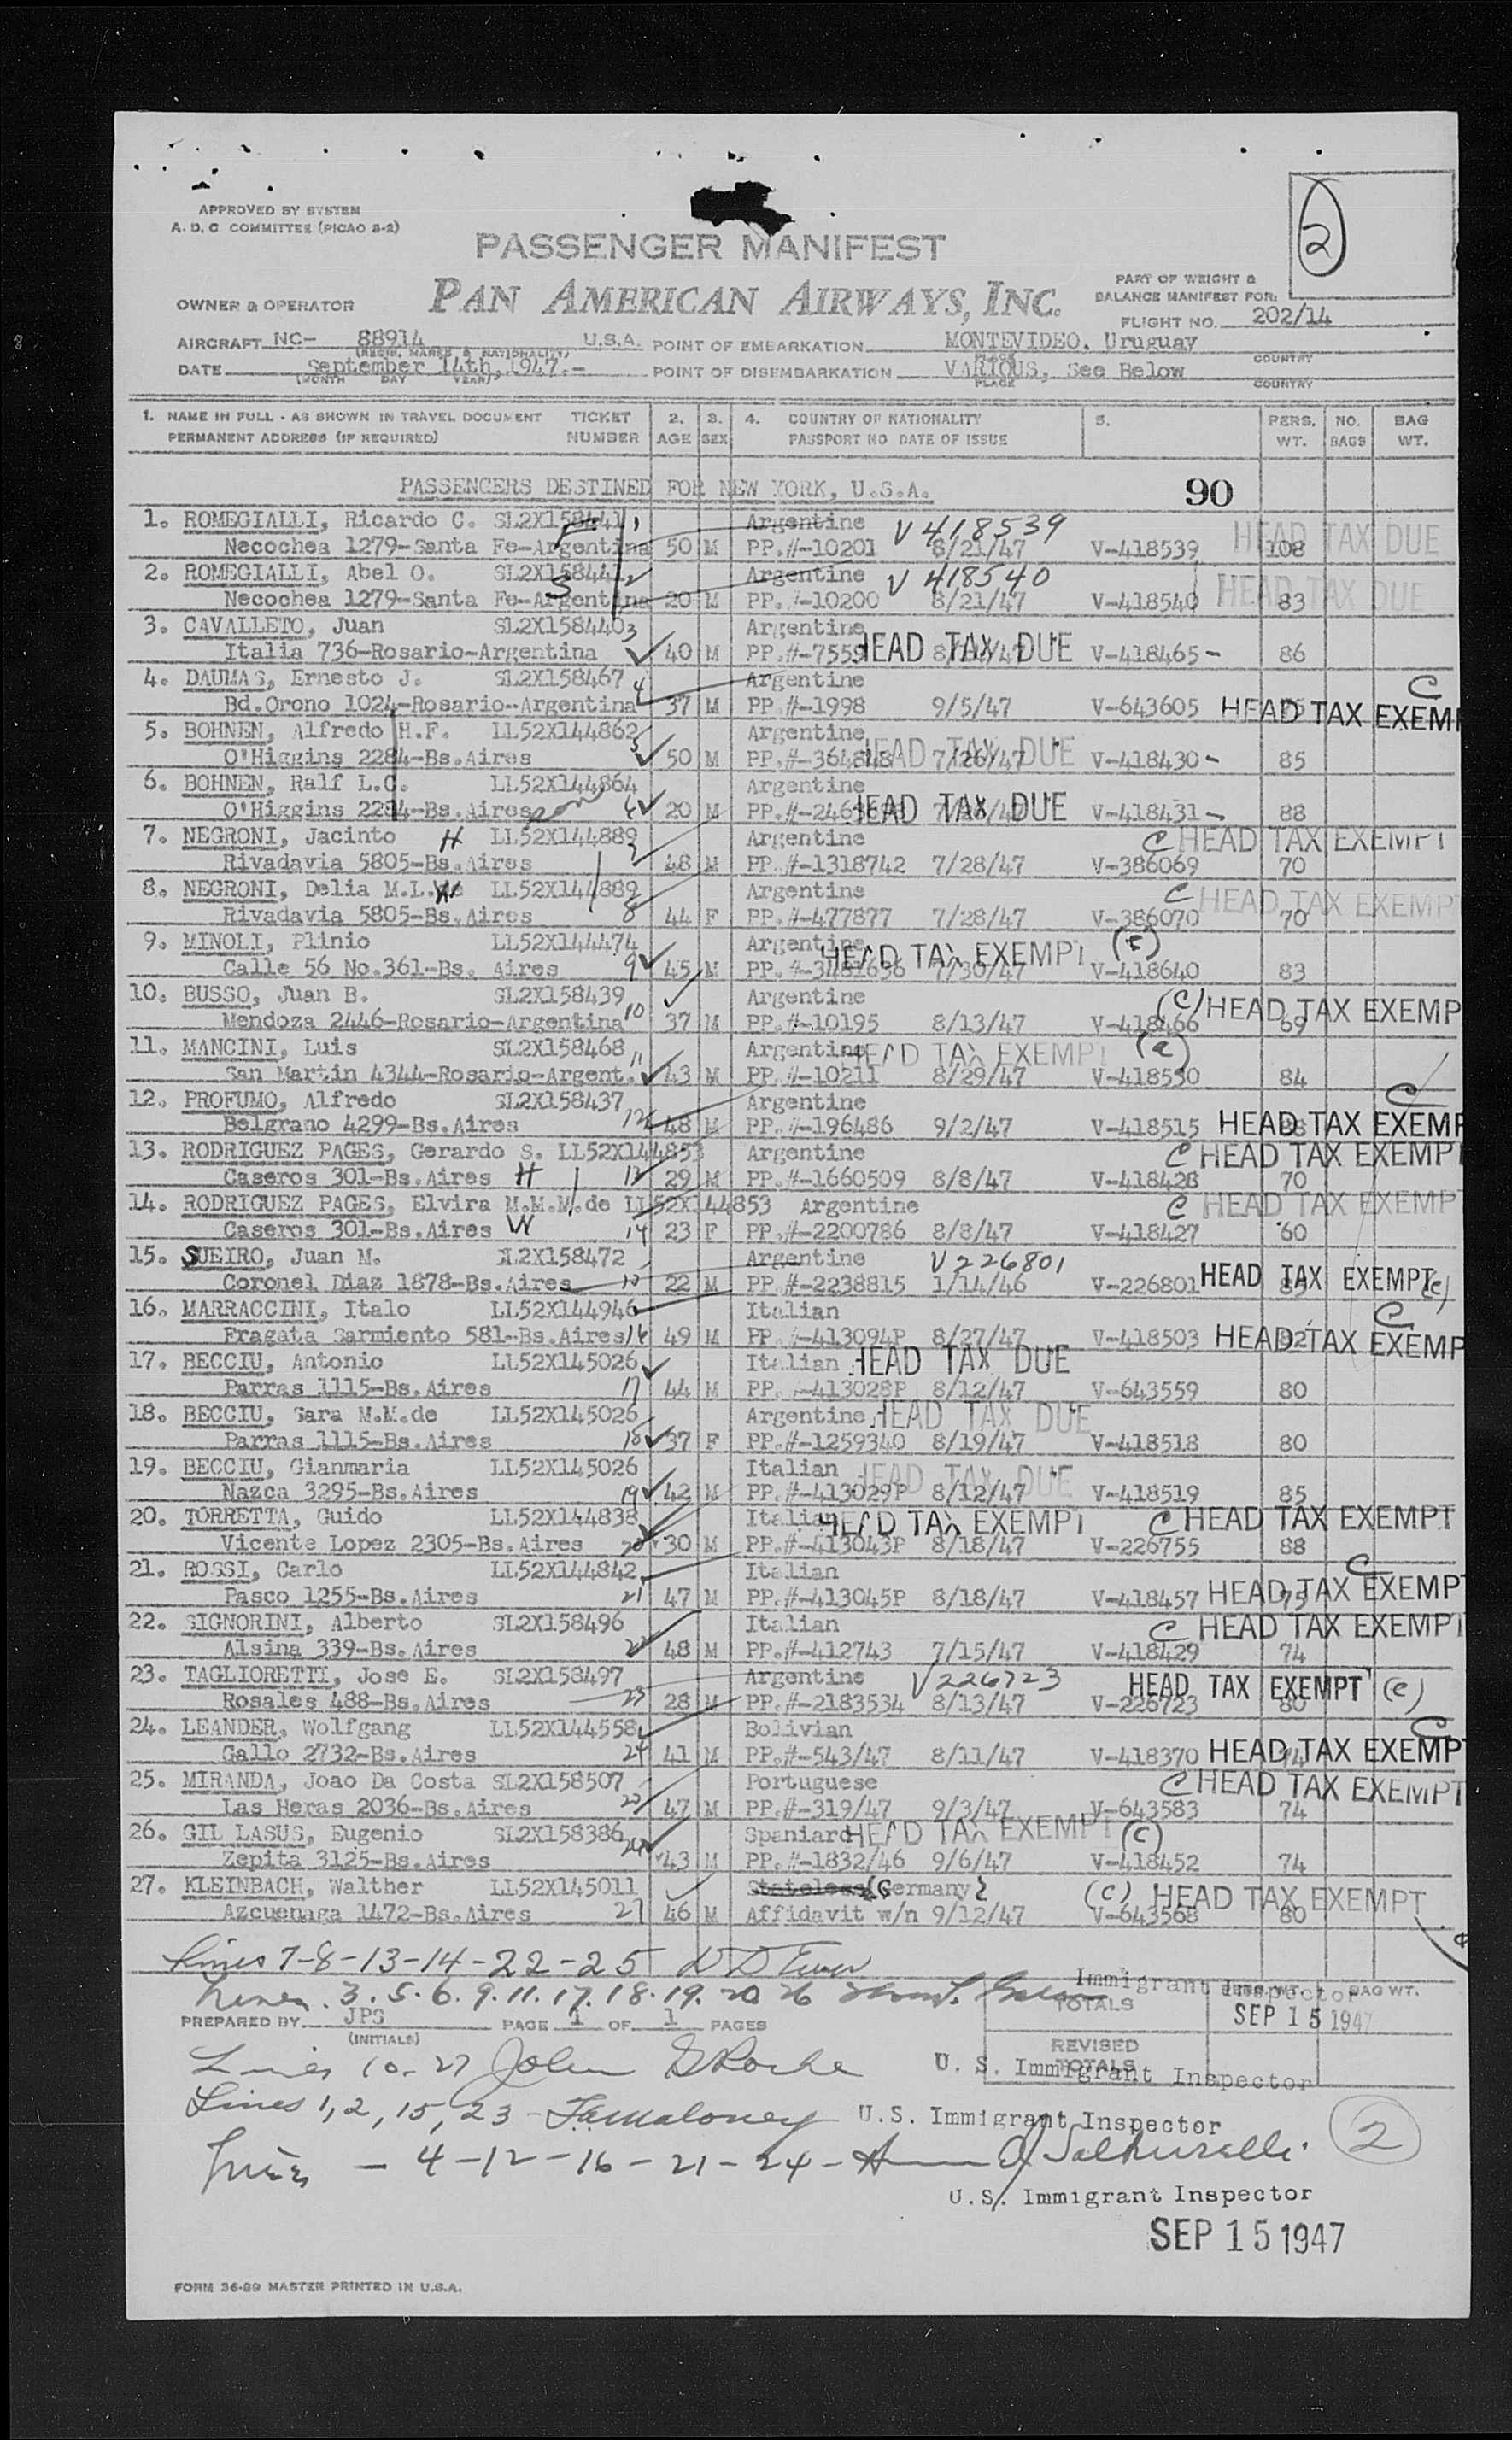 2
APPROVED BY SYSTEM
A.O.C COMMITTEE (PICAO 8-2)
PASSENGER MANIFEST
PAN AMERICAN AIRWAYS, INC.
PART OF WEIGHT &
BALANCE MANIFEST FOR:
OWNER & OPERATOR
FLIGHT NO. 202/14
AIRCRAFT NC- 88914 U.S.A. POINT OF EMBARKATION MONTEVIDEO, Uruguay
(REGIS. MARKS & NATIONALITY) PLACE COUNTRY
DATE September 14th, 1947.- POINT OF DISEMBARKATION VARIOUS, See Below
(MONTH DAY YEAR) PLACE COUNTRY
1. NAME IN FULL - AS SHOWN IN TRAVEL DOCUMENT TICKET 2. 3. 4. COUNTRY OF NATIONALITY 5. PERS. NO. BAG
PERMANENT ADDRESS (IF REQUIRED) NUMBER AGE SEX PASSPORT NO DATE OF ISSUE WT. BAGS WT.
PASSENGERS DESTINED FOR NEW YORK, U.S.A. 90
1. ROMEGIALLI, Ricardo C. SL2X158441 1 Argentine V 418539 HEAD TAX DUE
Necochea 1279-Santa Fe-Argentina 50 M PP.#-10201 8/21/47 V-418539 108
2. ROMEGIALLI, Abel O. SL2X158441 2 Argentine V 418540 HEAD TAX DUE
Necochea 1279-Santa Fe-Argentina 20 M PP.#-10200 8/21/47 V-418540 83
3. CAVALLETO, Juan SL2X158440 3 Argentine HEAD TAX DUE
Italia 736-Rosario-Argentina 40 M V-418465- 86
4. DAUMAS, Ernesto J. SL2X158467 4 Argentine C
Bd.Orono 1024-Rosario-Argentina 37 M PP.#-1998 9/5/47 V-643605 HEAD TAX EXEM
5. BOHNEN, Alfredo H.F. LL52X144862 5 Argentine HEAD TAX DUE
O'Higgins 2284-Bs.Aires 50 M PP.#-364848 7/26/47 V-418430- 85
6. BOHNEN, Ralf L.C. LL52X144864 Argentine HEAD TAX DUE
O'Higgins 2284-Bs.Aires son 6 20 M V-418431- 88
7. NEGRONI, Jacinto H LL52X144889 7 Argentine C HEAD TAX EXEMPT
Rivadavia 5805-Bs.Aires 48 M PP.#-1318742 7/28/47 V-386069 70
8. NEGRONI, Delia M.L.de W LL52X144889 Argentine C HEAD TAX EXEMP
Rivadavia 5805-Bs.Aires 8 44 F PP.#-477877 7/28/47 V-386070 70
9. MINOLI, Plinio LL52X144474 Argentine HEAD TAX EXEMPT (F)
Calle 56 No.361-Bs. Aires 9 45 M PP.#-3481636 7/30/47 V-418640 83
10. BUSSO, Juan B. SL2X158439 Argentine (C) HEAD TAX EXEMP
Mendoza 2446-Rosario-Argentina 10 37 M PP.#-10195 8/13/47 V-418466 69
11. MANCINI, Luis SL2X158468 11 Argentine HEAD TAX EXEMPT (a)
San Martin 4344-Rosario-Argent. 43 M PP.#-10211 8/29/47 V-418530 84
12. PROFUMO, Alfredo SL2X158437 Argentine C
Belgrano 4299-Bs.Aires 12 48 M PP.#-196486 9/2/47 V-418515 HEAD TAX EXEMP
13. RODRIGUEZ PAGES, Gerardo S. LL52X144853 Argentine C HEAD TAX EXEMPT
Caseros 301-Bs.Aires H 13 29 M PP.#-1660509 8/8/47 V-418428 70
14. RODRIGUEZ PAGES, Elvira M.M.M.de LL52X144853 Argentine C HEAD TAX EXEMPT
Caseros 301-Bs.Aires W 14 23 F PP.#-2200786 8/8/47 V-418427 60
15. SUEIRO, Juan M. SL2X158472 Argentine V 226801
Coronel Diaz 1878-Bs.Aires 15 22 M PP.#-2238815 1/14/46 V-226801 HEAD TAX EXEMPT (c)
16. MARRACCINI, Italo LL52X144946 Italian C
Fragata Sarmiento 581-Bs.Aires 16 49 M PP.#-413094P 8/27/47 V-418503 92 HEAD TAX EXEMP
17. BECCIU, Antonio LL52X145026 Italian HEAD TAX DUE
Parras 1115-Bs.Aires 17 44 M PP.#-413028P 8/12/47 V-643559 80
18. BECCIU, Sara M.M.de LL52X145026 Argentine HEAD TAX DUE
Parras 1115-Bs.Aires 18 37 F PP.#-1259340 8/19/47 V-418518 80
19. BECCIU, Gianmaria LL52X145026 Italian HEAD TAX DUE
Nazca 3295-Bs.Aires 19 42 M PP.#-413029P 8/12/47 V-418519 85
20. TORRETTA, Guido LL52X144838 Italian HEAD TAX EXEMPT C HEAD TAX EXEMPT
Vicente Lopez 2305-Bs.Aires 20 30 M PP.#-413043P 8/18/47 V-226755 88
21. ROSSI, Carlo LL52X144842 Italian C
Pasco 1255-Bs.Aires 21 47 M PP.#-413045P 8/18/47 V-418457 75 HEAD TAX EXEMPT
22. SIGNORINI, Alberto SL2X158496 Italian C HEAD TAX EXEMPT
Alsina 339-Bs.Aires 22 48 M PP.#-412743 7/15/47 V-418429 74
23. TAGLIORETTI, Jose E. SL2X158497 Argentine V226723 HEAD TAX EXEMPT (c)
Rosales 488-Bs.Aires 23 28 M PP.#-2183534 8/13/47 V-226723 80
24. LEANDER, Wolfgang LL52X144558 Bolivian C
Gallo 2732-Bs.Aires 24 41 M PP.#-543/47 8/11/47 V-418370 HEAD TAX EXEMPT
25. MIRANDA, Joao Da Costa SL2X158507 Portuguese C HEAD TAX EXEMPT
Las Heras 2036-Bs.Aires 25 47 M PP.#-319/47 9/3/47 V-643583 74
26. GIL LASUS, Eugenio SL2X158386 Spaniard HEAD TAX EXEMPT (C)
Zepita 3125-Bs.Aires 26 43 M PP.#-1832/46 9/6/47 V-418452 74
27. KLEINBACH, Walther LL52X145011 Stateless (Germany) (C) HEAD TAX EXEMPT
Azcuenaga 1472-Bs.Aires 27 46 M Affidavit w/n 9/12/47 V-643568 80
Lines 7-8-13-14-22-25
Immigrant Inspector
Lines. 3. 5. 6. 9. 11. 17. 18. 19. 20 26
TOTALS PERS. WT. BAG WT.
PREPARED BY JPS PAGE 1 OF 1 PAGES SEP 15 1947
(INITIALS)
REVISED TOTALS
Lines 10-27 John Roche U. S. Immigrant Inspector
Lines 1, 2, 15, 23 - Maloney U.S. Immigrant Inspector
Lines - 4-12-16-21-24- 2
U.S. Immigrant Inspector
SEP 15 1947
FORM 36-89 MASTER PRINTED IN U.S.A.